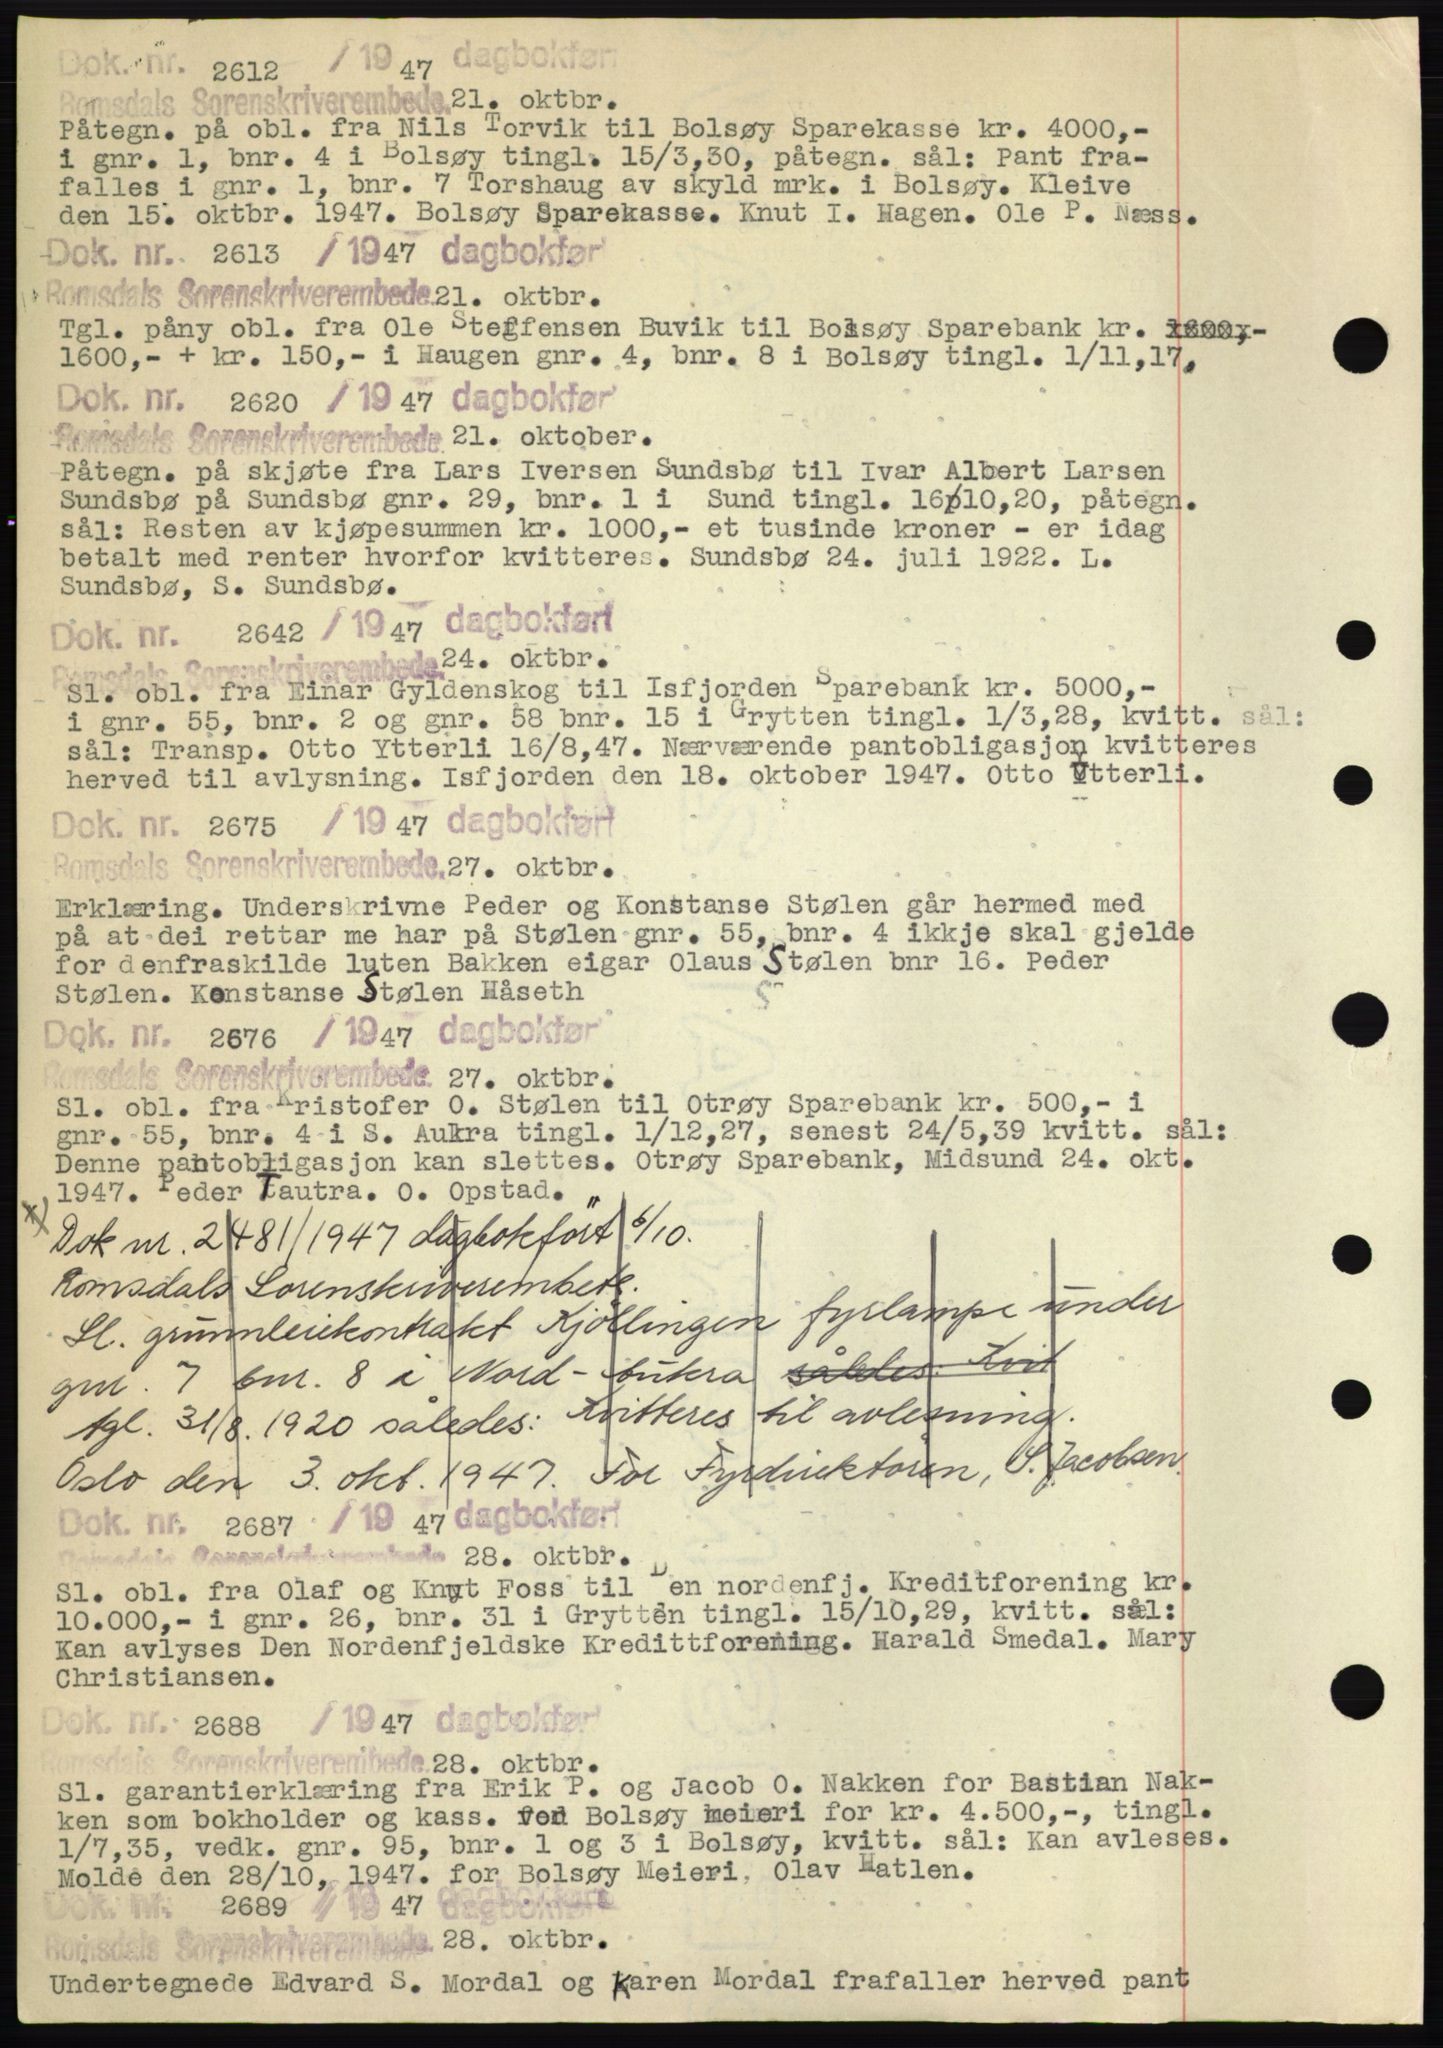 Dok. nr. 2612 / 19 47 dagbokført
Romsdals Sorenskriverembede. 21. oktbr.
Påtegn. på obl. fra Nils Torvik til Bolsøy Sparekasse kr. 4000,-
i gnr. 1, bnr. 4 i Bolsøy tingl. 15/3,30, påtegn. sål: Pant fra-
falles i gnr. 1, bnr. 7 Torshaug av skyld mrk. i Bolsøy. Kleive
den 15. oktbr. 1947. Bolsøy Sparekasse. Knut I. Hagen. Ole P. Næss.
Dok. nr. 2613 / 19 47 dagbokført
Romsdals Sorenskriverembede. 21. oktbr.
Tgl. påny obl. fra Ole Steffensen Buvik til Bolsøy Sparebank kr.
1600,- + kr. 150,- i Haugen gnr. 4, bnr. 8 i Bolsøy tingl. 1/11,17,
Dok. nr. 2620 / 19 47 dagbokført
Romsdals Sorenskriverembede. 21. oktober.
Påtegn. på skjøte fra Lars Iversen Sundsbø til Ivar Albert Larsen
Sundsbø på Sundsbø gnr. 29, bnr. 1 i Sund tingl. 16/10,20, påtegn.
sål: Resten av kjøpesummen kr. 1000,- et tusinde kroner - er idag
betalt med renter hvorfor kvitteres. Sundsbø 24. juli 1922. L.
Sundsbø, S. Sundsbø.
Dok. nr. 2642 / 19 47 dagbokført
Romsdals Sorenskriverembede. 24. oktbr.
Sl. obl. fra Einar Gyldenskog til Isfjorden Sparebank kr. 5000,-
i gnr. 55, bnr. 2 og gnr. 58 bnr. 15 i Grytten tingl. 1/3,28, kvitt. sål:
sål: Transp. Otto Ytterli 16/8,47. Nærværende pantobligasjon kvitteres
herved til avlysning. Isfjorden den 18. oktober 1947. Otto Ytterli.
Dok. nr. 2675 / 19 47 dagbokført
Romsdals Sorenskriverembede. 27. oktbr.
Erklæring. Underskrivne Peder og Konstanse Stølen går hermed med
på at dei rettar me har på Stølen gnr. 55, bnr. 4 ikkje skal gjelde
for denfraskilde luten Bakken eigar Olaus Stølen bnr 16. Peder
Stølen. Konstanse Stølen Håseth
Dok. nr. 2676 / 19 47 dagbokført
Romsdals Sorenskriverembede. 27. oktbr.
Sl. obl. fra Kristofer O. Stølen til Otrøy Sparebank kr. 500,- i
gnr. 55, bnr. 4 i S. Aukra tingl. 1/12,27, senest 24/5,39 kvitt. sål:
Denne pantobligasjon kan slettes. Otrøy Sparebank, Midsund 24. okt.
1947. Peder Tautra. O. Opstad.
Dok nr. 2481/1947 dagbokført 6/10.
Romsdals Sorenskriverembete.
Sl. grunnleiekontrakt Kjöllingen fyrlampe under
gnr. 7 bnr. 8 i Nord-Aukra således: Kvit
tgl. 31/8. 1920 således: Kvitteres til avlesning.
Oslo den 3. okt. 1947. For Fyrdirektøren, S. Jacobsen.
Dok. nr. 2687 / 19 47 dagbokført
Romsdals Sorenskriverembede 28. oktbr.
Sl. obl. fra Olaf og Knut Foss til Den nordenfj. Kreditforening kr.
10.000,- i gnr. 26, bnr. 31 i Grytten tingl. 15/10,29, kvitt. sål:
Kan avlyses Den Nordenfjeldske Kredittforening. Harald Smedal. Mary
Christiansen.
Dok. nr. 2688 / 19 47 dagbokført
Romsdals Sorenskriverembede. 28. oktbr.
Sl. garantierklæring fra Erik P. og Jacob O. Nakken for Bastian Nak-
ken som bokholder og kass. ved Bolsøy meieri for kr. 4.500,-, tingl.
1/7,35, vedk. gnr. 95, bnr. 1 og 3 i Bolsøy, kvitt. sål: Kan avleses.
Molde den 28/10, 1947. for Bolsøy Meieri. Olav Hatlen.
Dok. nr. 2689 / 19 47 dagbokført
Romsdals Sorenskriverembede. 28. oktbr.
Undertegnede Edvard S. Mordal og Karen Mordal frafaller herved pant